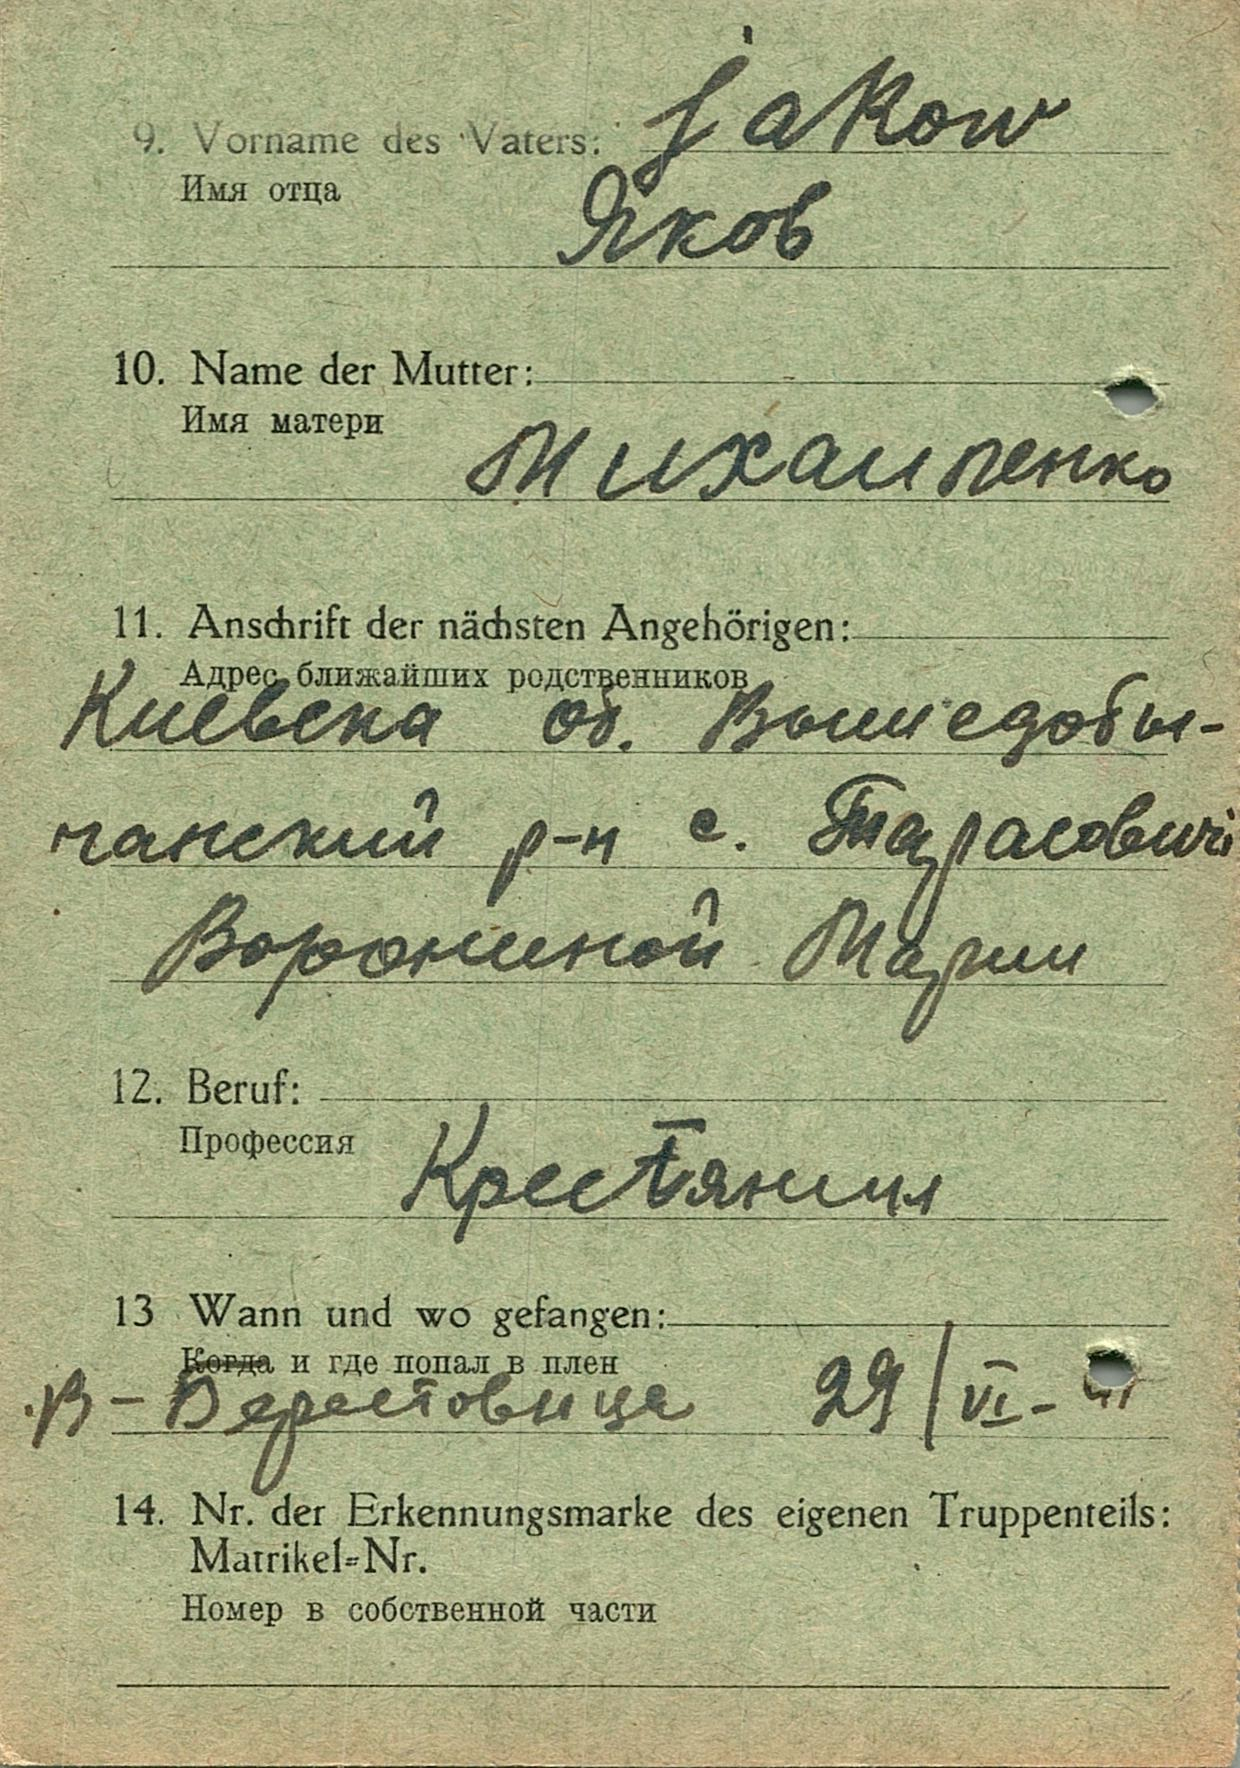 9. Vorname des Vaters: Jakow
Имя отца
Яков
10. Name der Mutter:
Имя матери
Михаиленко
11. Anschrift der nächsten Angehörigen:
Адрес ближайших родственников
Киевска об. Вышедобы-
чанский р-н с. Тарасовичі
Ворониной Марии
12. Beruf:
Профессия
Крестяниц
13 Wann und wo gefangen:
Когда и где попал в плен
В-Берестовица 29/VI-41
14. Nr. der Erkennungsmarke des eigenen Truppenteils:
Matrikel=Nr.
Номер в собственной части